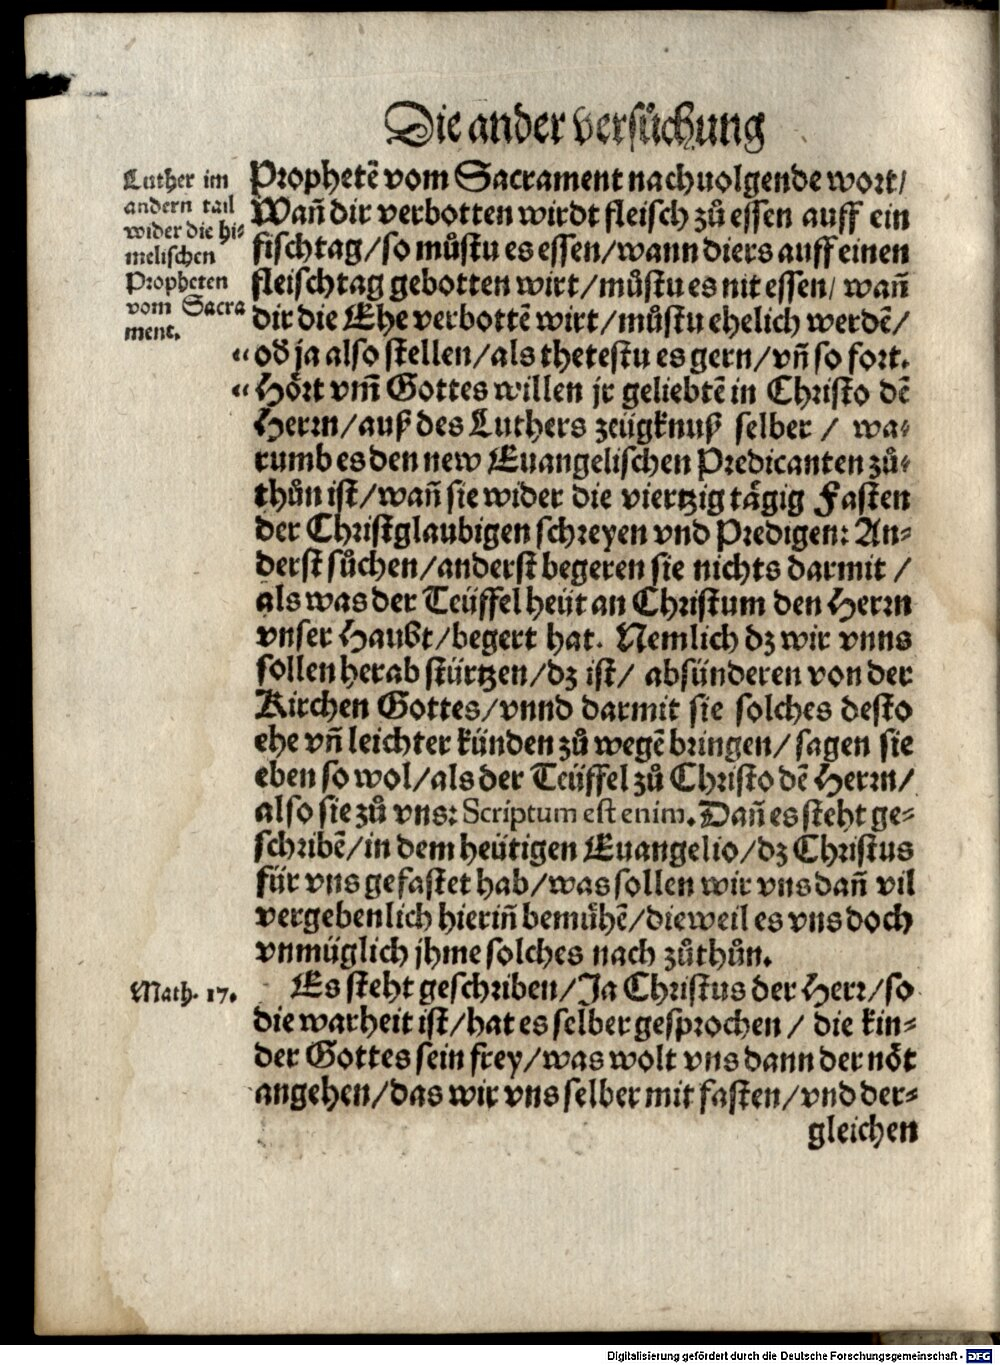 Die ander versuͦchung
Luther im
andern tail
wider die hi⸗
melischen
Propheten
vom Sacra
ment.
Prophetē vom Sacrament nachuolgende wort/
Wañ dir verbotten wirdt fleisch zuͦ essen auff ein
fischtag/so muͦstu es essen/wann diers auff einen
fleischtag gebotten wirt/muͦstu es nit essen/ wañ
dir die Ehe verbottē wirt/muͦstu ehelich werdē/
„ oď ja also stellen/als thetestu es gern/vñ so fort.
„ Hoͤrt vm̃ Gottes willen jr geliebtē in Christo dē
Herrn/auß des Luthers zeügknuß selber / wa⸗
rumb es den new Euangelischen Predicanten zuͦ⸗
thuͦn ist/wañ sie wider die viertzig taͤgig Fasten
der Christglaubigen schreyen vnd Predigen: An⸗
derst suͦchen/anderst begeren sie nichts darmit /
als was der Teüffel heüt an Christum den Herrn
vnser Haubt/begert hat. Nemlich dz wir vnns
sollen herab stürtzen/dz ist/ absünderen von der
Kirchen Gottes/vnnd darmit sie solches desto
ehe vñ leichter künden zuͦ wegē bringen/ sagen sie
eben so wol/als der Teüffel zuͦ Christo dē Herrn/
also sie zuͦ vns: Scriptum est enim. Dañ es steht ge⸗
schribē/in dem heütigen Euangelio/dz Christus
für vns gefastet hab/was sollen wir vns dañ vil
vergebenlich hieriñ bemühē/dieweil es vns doch
vnmüglich jhme solches nach zuͦthuͦn.
Math. 17.
Es steht geschriben/Ja Christus der Herr/so
die warheit ist/hat es selber gesprochen / die kin⸗
der Gottes sein frey/was wolt vns dann der noͤt
angehen/das wir vns selber mit fasten/vnd der⸗
gleichen
Digitalisierung gefördert durch die Deutsche Forschungsgemeinschaft - DFG